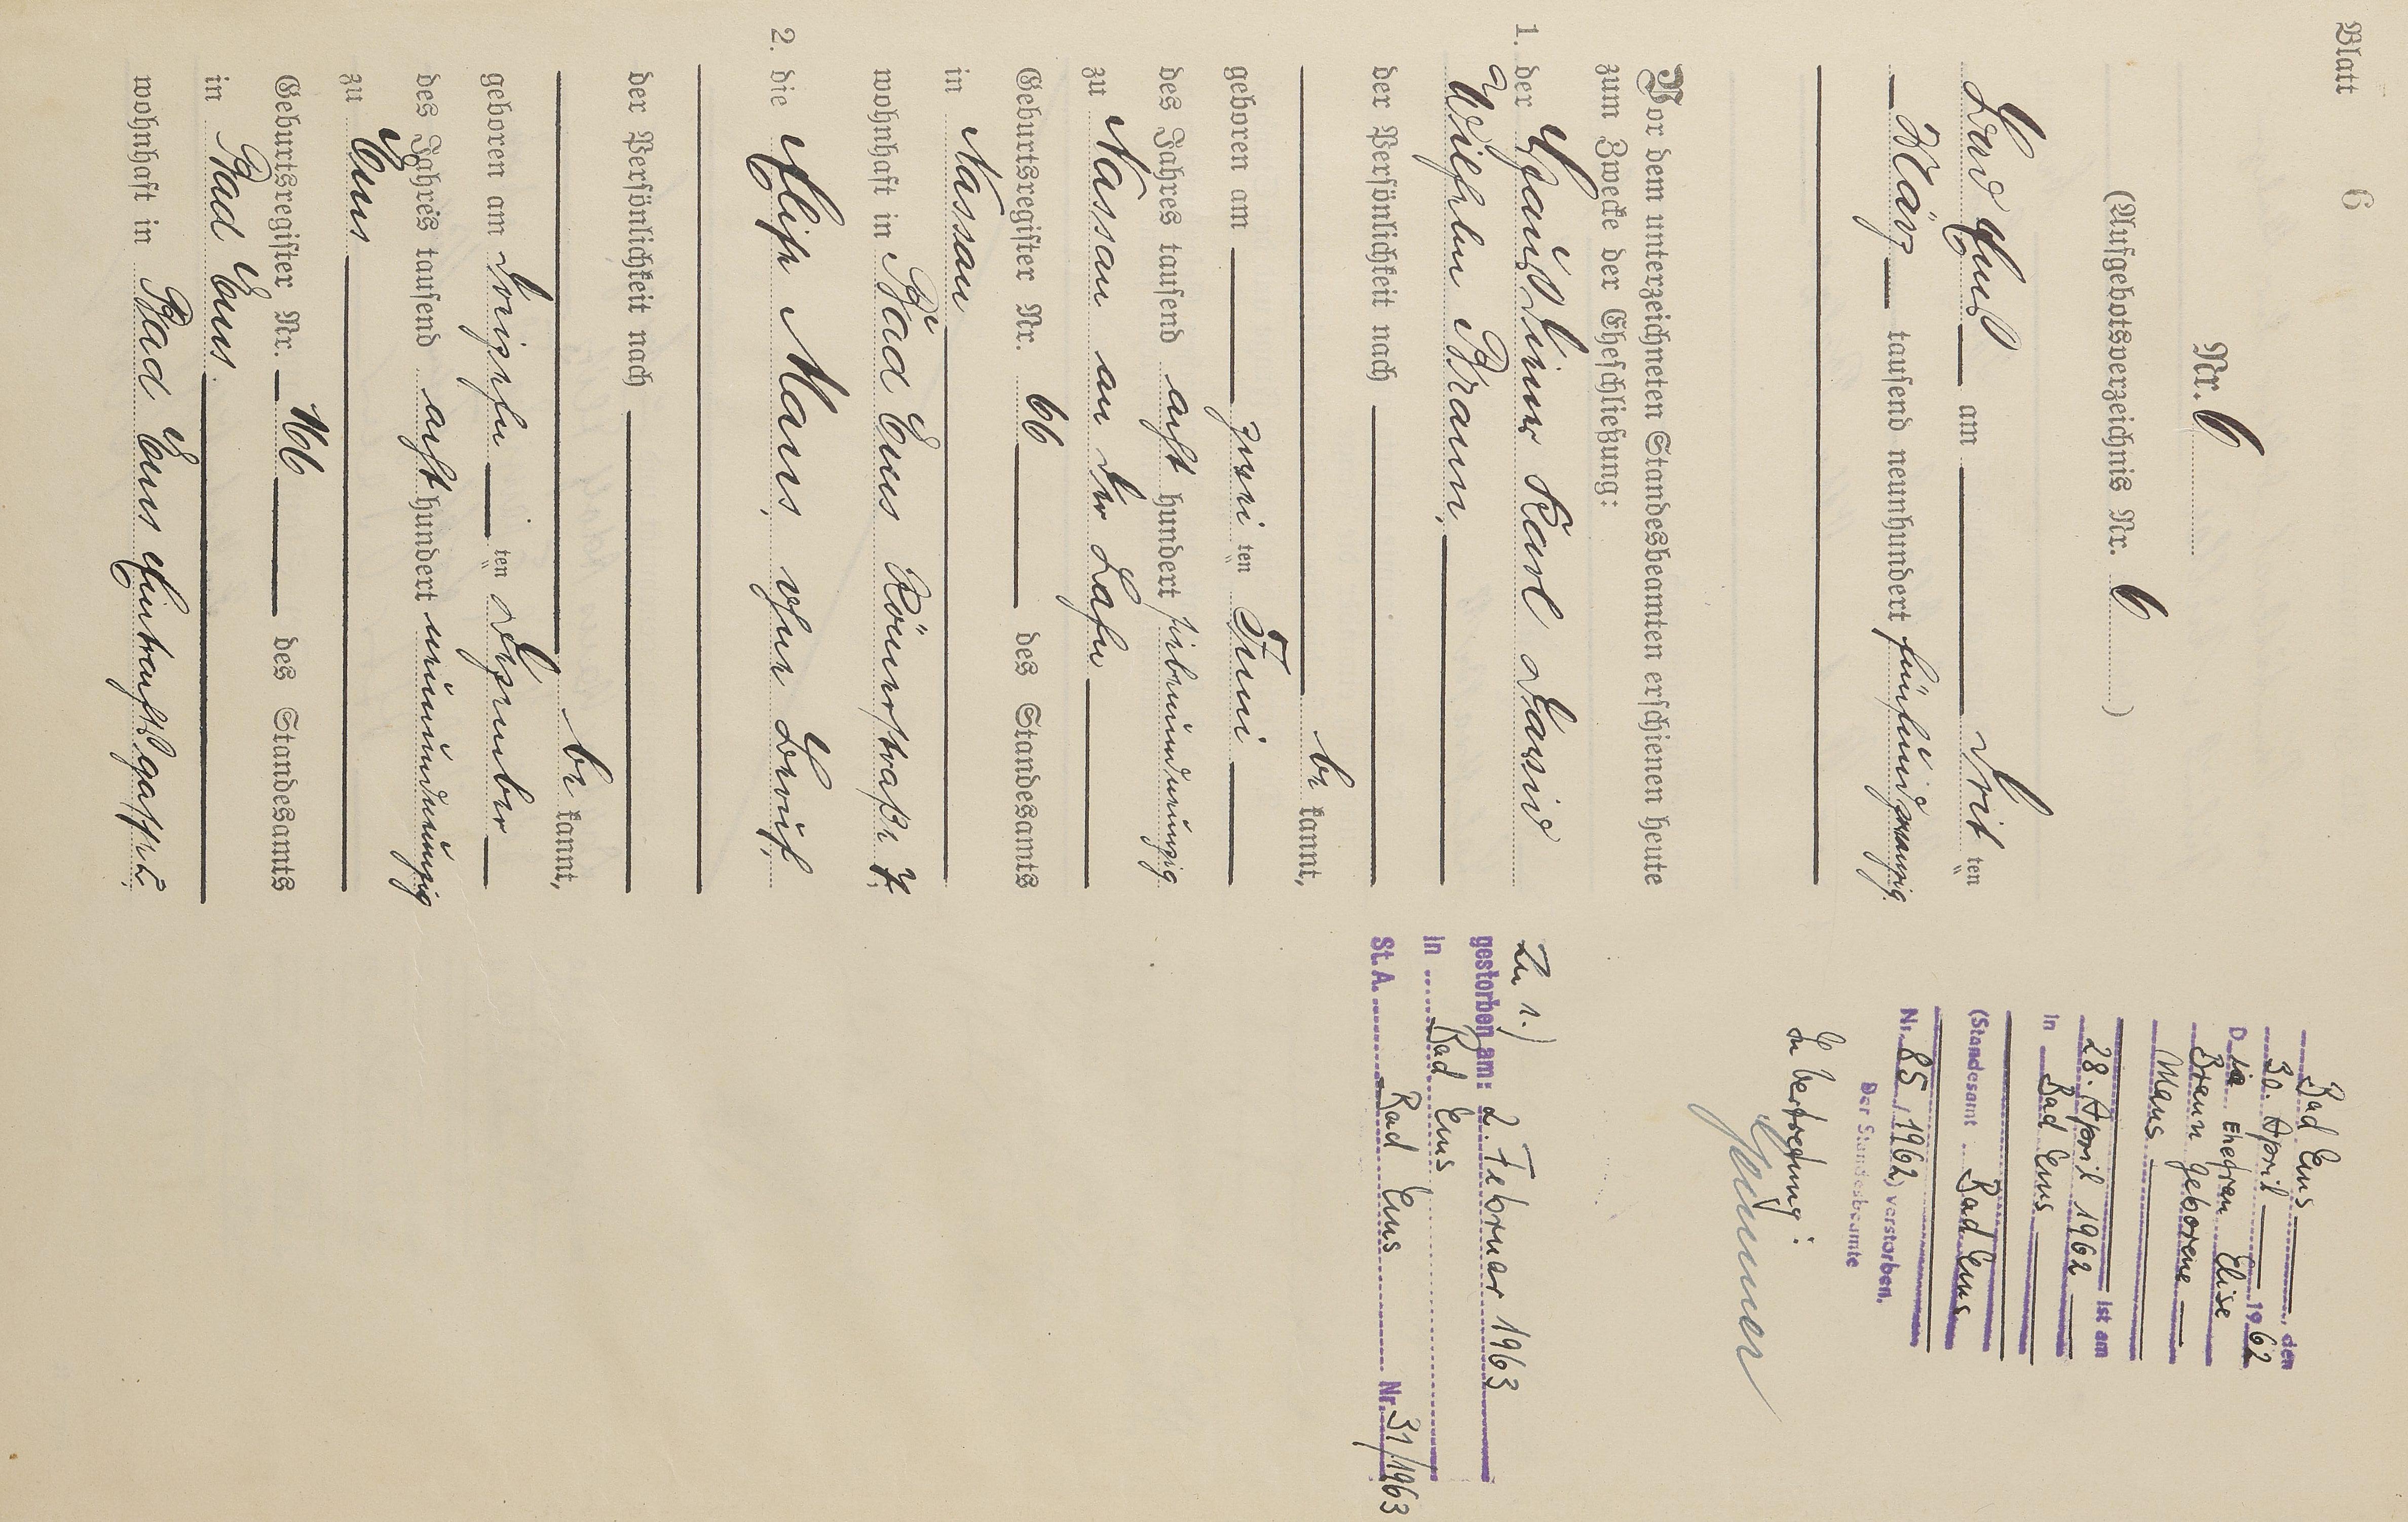 Blatt 6
Nr. 6
(Aufgebotsverzeichnis Nr. 6 )
Bad Ems am drit ten
März tausend neunhundert fünfundzwanzig.
Vor dem unterzeichneten Standesbeamten erschienen heute
zum Zwecke der Eheschließung:
1. der Karl David
Wilhelm Bramm,
der Persönlichkeit nach
be kannt,
geboren am zwei ten Juni
des Jahres tausend acht hundert siebenundneunzig
zu Nassau an der Lahn
Geburtsregister Nr. 66 des Standesamts
in Nassau
wohnhaft in Bad Ems Römerstraße
2. die Elise Maus, ohne Beruf,
der Persönlichkeit nach
be kannt,
geboren am dreizehn ten Dezember
des Jahres tausend acht hundert neunundneunzig
zu Ems
Geburtsregister Nr. 166 des Standesamts
in Bad Ems
wohnhaft in Bad Ems
Bad Ems, den
30. April 1962
Die Ehefrau Elise
Bramm geborene
Maus ist am
28. April 1962
in Bad Ems
(Standesamt Bad Ems
Nr. 85/1962) verstorben.
Der Standesbeamte
In Vertretung:
Zu 1.)
gestorben am: 2. Februar 1963
in Bad Ems
St. A. Bad Ems Nr. 31/1963